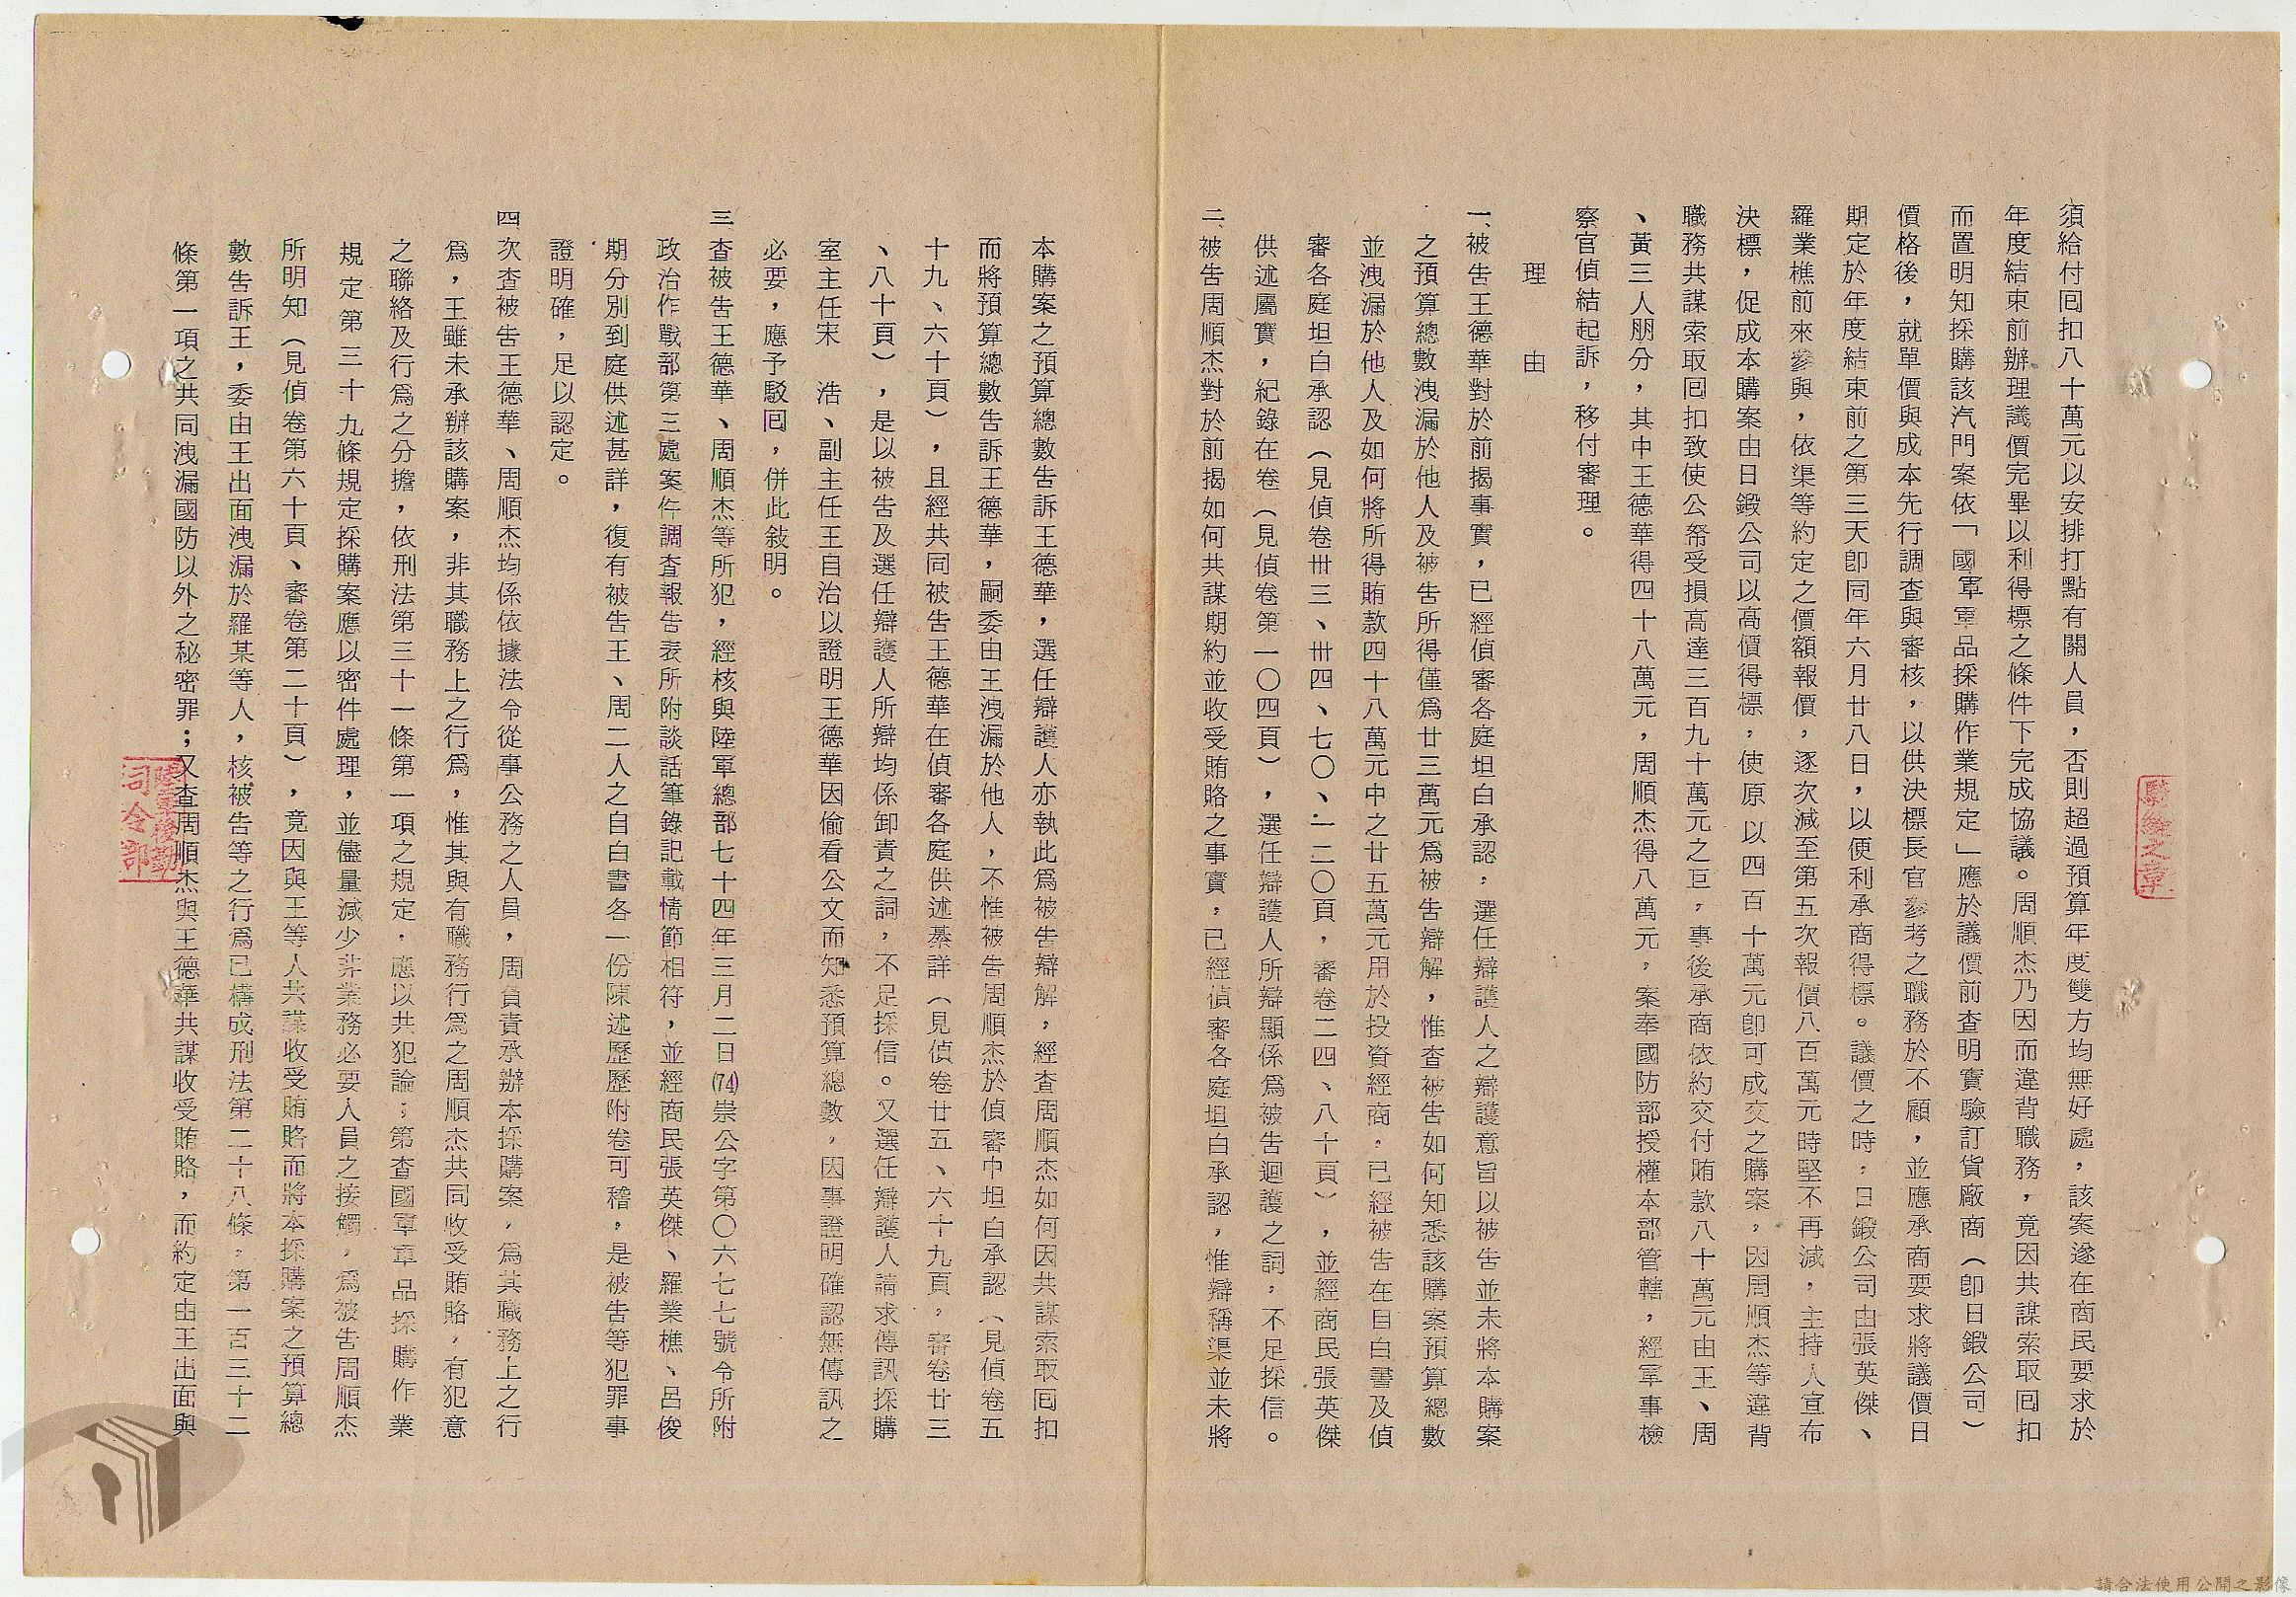 須給付回扣八十萬元以安排打點有關人員，否則超過預算年度雙方均無好處，該案遂在商民要求於
年度結束前辦理議價完畢以利得標之條件下完成協議。周順杰乃因而違背職務，竟因共謀索取回扣
而置明知採購該汽門案依「國軍軍品採購作業規定」應於議價前查明實驗訂貨廠商（即日鍛公司）
價格後，就單價與成本先行調查與審核，以供決標長官參考之職務於不顧，並應承商要求將議價日
期定於年度結束前之第三天即同年六月廿八日，以便利承商得標。議價之時，日鍛公司由張英傑、
羅業樵前來參與，依渠等約定之價額報價，逐次減至第五次報價八百萬元時堅不再減，主持人宣布
決標，促成本購案由日鍛公司以高價得標，使原以四百十萬元即可成交之購案，因周順杰等違背
職務共謀索取回扣致使公帑受損高達三百九十萬元之巨，事後承商依約交付賄款八十萬元由王、周
、黃三人朋分，其中王德華得四十八萬元，周順杰得八萬元，案奉國防部授權本部管轄，經軍事檢
察官偵結起訴，移付審理。
理　由
一、被告王德華對於前揭事實，已經偵審各庭坦白承認，選任辯護人之辯護意旨以被告並未將本購案
之預算總數洩漏於他人及被告所得僅為廿三萬元為被告辯解，惟查被告如何知悉該購案預算總數
並洩漏於他人及如何將所得賄款四十八萬元中之廿五萬元用於投資經商，已經被告在自白書及偵
審各庭坦白承認（見偵卷卅三、卅四、七〇、一二〇頁，審卷二四、八十頁），並經商民張英傑
供述屬實，紀錄在卷（見偵卷第一〇四頁），選任辯護人所辯顯係為被告迴護之詞，不足採信。
二、被告周順杰對於前揭如何共謀期約並收受賄賂之事實，已經偵審各庭坦白承認，惟辯稱渠並未將
本購案之預算總數告訴王德華，選任辯護人亦執此為被告辯解，經查周順杰如何因共謀索取回扣
而將預算總數告訴王德華，嗣委由王洩漏於他人，不惟被告周順杰於偵審中坦白承認（見偵卷五
十九、六十頁），且經共同被告王德華在偵審各庭供述綦詳（見偵卷廿五、六十九頁，審卷廿三
、八十頁），是以被告及選任辯護人所辯均係卸責之詞，不足採信。又選任辯護人請求傳訊採購
室主任宋　浩、副主任王自治以證明王德華因偷看公文而知悉預算總數，因事證明確認無傳訊之
必要，應予駁回，併此敍明。
三、查被告王德華、周順杰等所犯，經核與陸軍總部七十四年三月二日(74)崇公字第〇六七七號令所附
政治作戰部第三處案件調查報告表所附談話筆錄記載情節相符，並經商民張英傑、羅業樵、呂俊
期分別到庭供述甚詳，復有被告王、周二人之自白書各一份陳述歷歷附卷可稽，是被告等犯罪事
證明確，足以認定。
四、次查被告王德華、周順杰均係依據法令從事公務之人員，周負責承辦本採購案，為其職務上之行
為，王雖未承辦該購案，非其職務上之行為，惟其與有職務行為之周順杰共同收受賄賂，有犯意
之聯絡及行為之分擔，依刑法第三十一條第一項之規定，應以共犯論；第查國軍軍品採購作業
規定第三十九條規定採購案應以密件處理，並儘量減少非業務必要人員之接觸，為被告周順杰
所明知（見偵卷第六十頁、審卷第二十頁），竟因與王等人共謀收受賄賂而將本採購案之預算總
數告訴王，委由王出面洩漏於羅某等人，核被告等之行為已構成刑法第二十八條，第一百三十二
條第一項之共同洩漏國防以外之秘密罪；又查周順杰與王德華共謀收受賄賂，而約定由王出面與
騎縫之章
陸軍後勤
司令部
請合法使用公開之影像